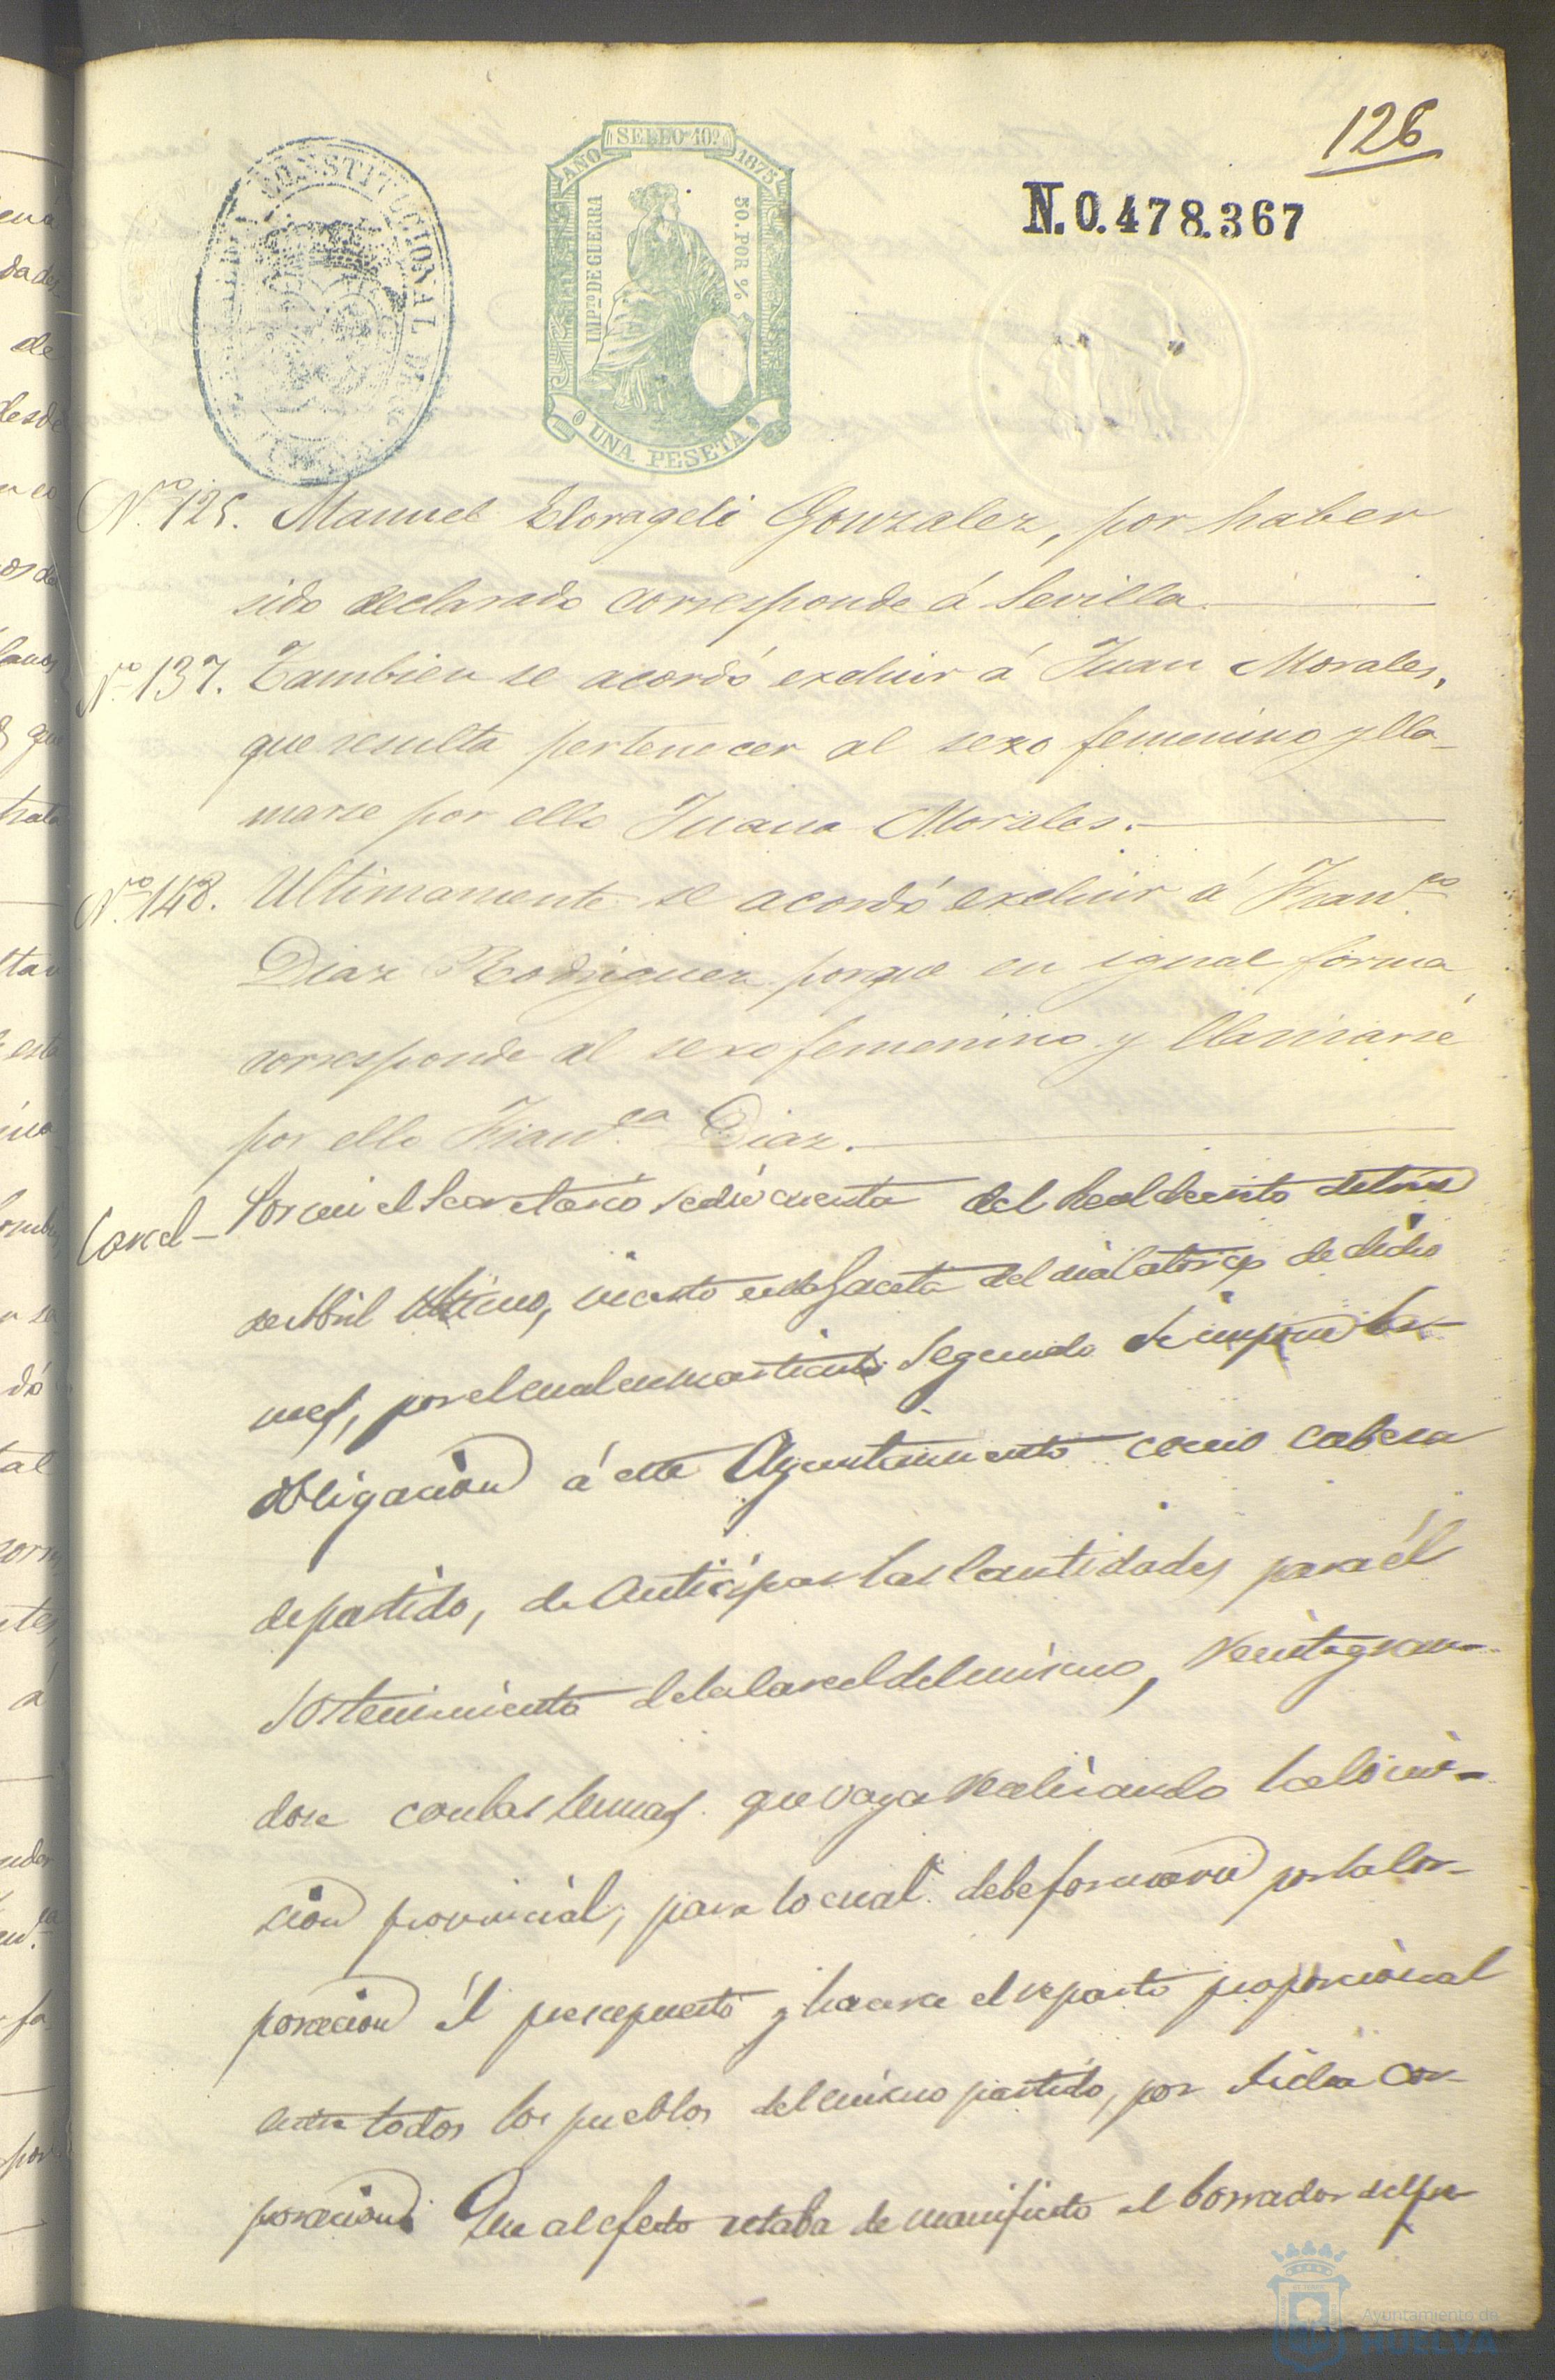 126
CONSTITUCIONAL DE
SELLO 10º
AÑO 1875
IMPTO DE GUERRA
50. POR %
UNA PESETA
N.0.478.367
N.ro 125. Manuel Gonzalez, por haber
sido declarado corresponde á Sevilla.
N.ro 137. Tambien se acordó excluir á Juan Morales,
que resulta pertenecer al sexo femenino y lla-
marse por ello Juana Morales.
N.ro 148. Ultimamente se acordó excluir á Fran.co
Diaz Rodriguez porque en igual forma
corresponde al sexo femenino y llamarse
por ello Fran.ca Diaz.
Carcel- Por mi el Secretario se dió cuenta del Real decreto
de Abril ultimo, inserto en la Gaceta del dia catorce de dicho
mes, por el cual en su articulo segundo se impone la
obligacion á este Ayuntamiento como cabeza
de partido, de anticipar las Cantidades para el
sostenimiento de la Carcel del mismo, reintegran-
dose con las sumas que vaya realizando
cion provincial, para lo cual debe formarse por la Cor-
poracion el presupuesto y hacerse el reparto proporcional
entre todos los pueblos del mismo partido, por dicha Cor-
poracion. Que al efecto estaba de manifiesto el borrador del pre
Ayuntamiento de
HUELVA